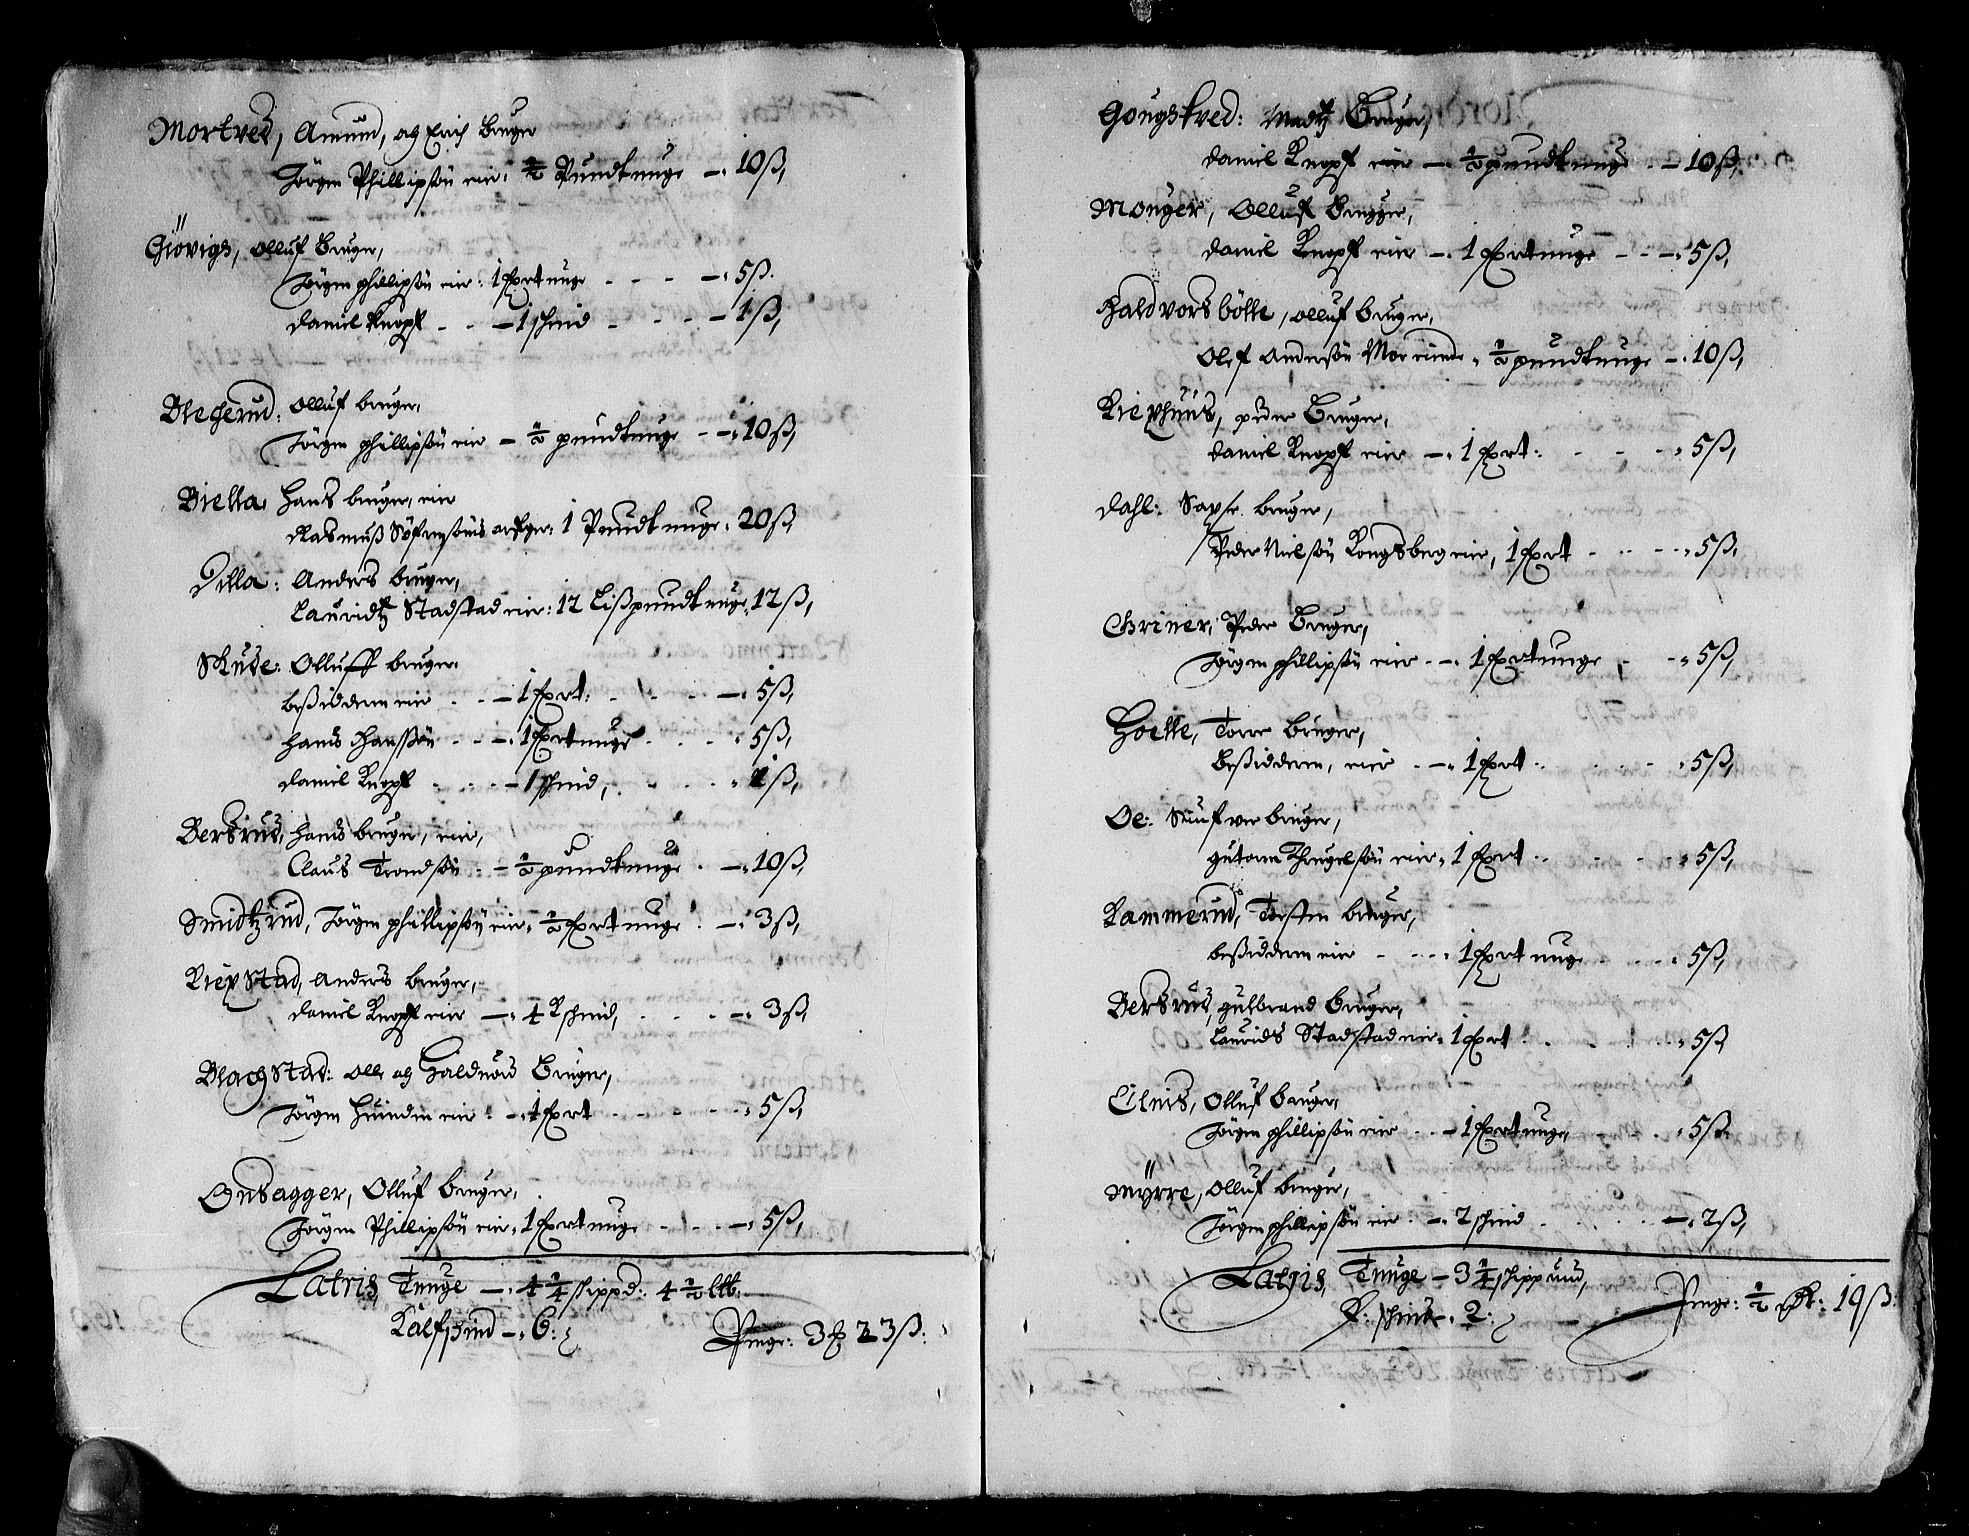 Mortved, Amund, og Erich Bruger
Jörgen Phillipsön eier: ½ Pundt tunge – 10 ß,
Giövigs, Olluf Bruger,
Jörgen phillipsön eier: 1 fxrtunge – 5 ß.
Daniel Knopf – 1 schind – 1 ß,
Blecherud: Olluf bruger,
Jörgen phillipsön eier – ½ pundt tunge – 10 ß,
Biella, Hans bruger, eier
Rasmuß Söfrensöns arfger: 1 Pundt tunge, 20 ß,
Dilla: Anders bruger,
Lauridtz Stadstad eier: 12 Lißpundt tunge, 12 ß,
Skude: Olluff bruger
beßidderen eier – 1 fxrt: – 5 ß,
Hans Hanssön – 1 fxrtunge – 5 ß,
Daniel Knopf – 1 schind, 1 ß,
Bersrud, Hans bruger, eier,
Claus Trondsön – ½ pundt tunge – 10 ß,
Smidtzrud, Jörgen phillipsön eier, ½ fxrtunge – 3 ß,
Kiexstad, Anders bruger,
Daniel Knopf eier – 4 K schind, – 3 ß,
Blachstad: Olle og Haldvord Bruger,
Jörgen Huinden eier: – 1 fxrt – 5 ß,
Onsagger, Olluf bruger,
Jörgen Phillipsön eier, 1 fxrtunge – 5 ß,
Latris, Tunge – 4 ¼ schippd: 4 ½ Ltb:
Kalfschind – 6:
Penge: 3 f 23 ß:
Gougstved: Madtz Bruger,
Daniel Knopf eier – ½ pundt tunge – 10 ß,
Monger, Olluf Brugger,
Daniel Knopf eier – 1 fxrtunge – 5 ß,
Haldvorsbölle, Olluf bruger,
Olef Andersön Morrinde, ½ pundt tunge – 10 ß,
Kiexhuus, peder Bruger,
Daniel Knopf eier – 1 fxrt: 5 ß,
Dahl: bruger,
Peder Nielsön Kongsberg eier, 1 fxrt – 5 ß,
Griner, Peder Bruger,
Jörgen phillipsön eier – 1 fxrtunge, 5 ß,
Hoelle, Torre bruger,
Beßidderen, eier – 1 fxrt 5 ß,
Oe: bruger,
gutorm Thrugelsön eier, 1 fxrt 5 ß,
Kammerud, Torsten bruger,
beßidderen eier – 1 fxrtunge 5 ß,
Bersrud, gulbrand Bruger,
Laurids Stadstad eier, 1 fxrt 5 ß,
Eilnis, Olluf bruger,
Jörgen phillipsön eier – 1 fxrtunge, 5 ß,
Mÿrre, Olluf bruger,
Jörgen phillipsön eier – 2 schind – 2 ß,
Latris, Tunge – 3 ¼ schippund,
K: schind – 2:
Penge: ½ Dr: 19 ß: